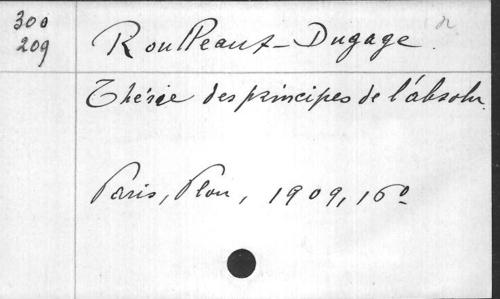 300
209
Roulleaux-Dugage.
Théorie des principes de l'absolu
Paris, Plon, 1909, 16º